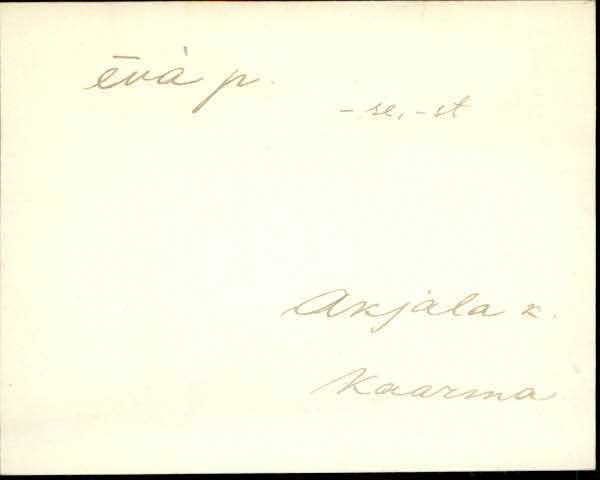 ēvà p.
-se, -st
Akjala k.
Kaarma